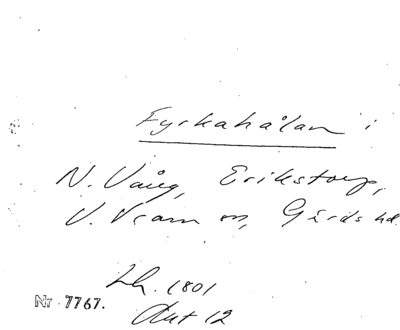 Fyrkahålan i
N. Vång, Erikstorp,
V. Vram m, Gärds hd.
Lh. 1801
Akt 12
Nr 7767.